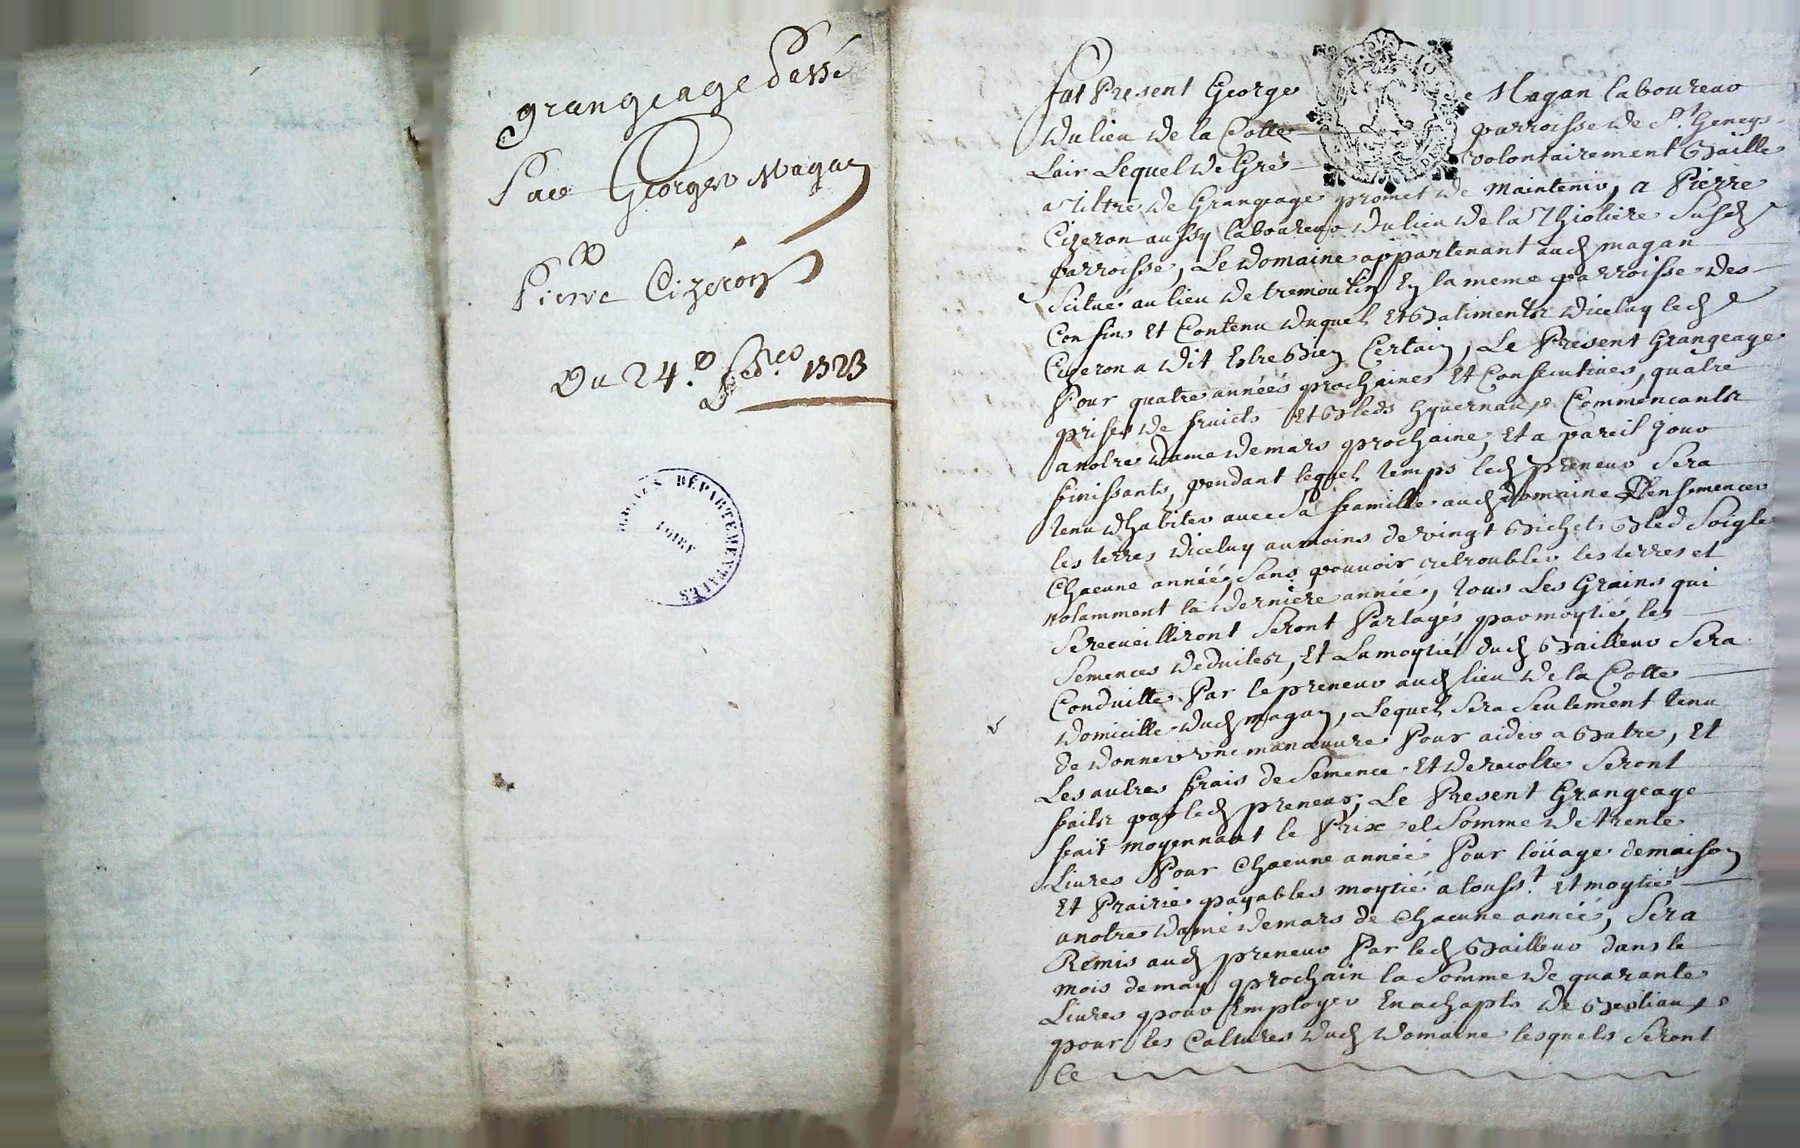 grangeage Passé
Par George Magan
Pierre Cizeron
Du 24.e
ARCHIVES DÉPARTEMENTALES
LOIRE
fut Present George Magan laboureur
du lieu de la Cotte parroisse de St. Geneys
Lair Lequel de Gré volontairement Baille
a tiltre de Grangeage promet de maintenir, a Pierre
Cizeron aussy laboureur du lieu de la Thioliere Susd
parroisse, Le domaine appartenant aud magan
Scitué au lieu de tremoulin En la meme parroisse des
Confins et Contenu duquel et Batiments diceluy led
Cizeron a dit Estre Bien Certain, Le Present Grangeage
Pour quatre années prochaines et Consecutives, quatre
prises de fruicts et Bleds hyvernaux Commencants
a notre dame de mars prochaine, et a pareil jour
finissants, pendant lequel temps led preneur Sera
tenu dhabiter avec Sa famille aud domaine Densemencer
les terres diceluy au moins de vingt Bichets Bled Soigle
Chacune année, Sans pouvoir retroubler les terres et
notamment la derniere année, tous Les Grains qui
Se recueilliront Seront Partagés par moytié, les
Semences deduites, Et La moytié dud Bailleur Sera
Conduitte Par le preneur aud lieu de la Cotte
domicille dud magan, Lequel Sera Seulement tenu
de donner une manœuvre Pour aider a Batre, Et
Les autres frais de Semence Et de recolte Seront
faits par led preneur; Le Present Grangeage
fait moyennant le Prix et Somme de trente
Livres Pour Chacune année Pour loüage de maison
Et Prairie payables moytié a touss.t et moytié
a notre dame de mars de Chacune année, Sera
Remis aud preneur Par led Bailleur dans le
mois de may prochain la Somme de quarante
Livres pour Employer En achapts de Bestiaux
pour les Cultures dud domaine lesquels Seront
Ce